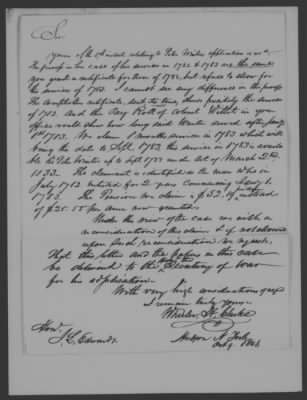 Sir
Yours of the 2d inst relating to Peter Winters application is recd
The proof in his case of his services in 1782 & 1783 are the same
you grant a certificate for those of 1782, but refuse to allow for
the services of 1783. I cannot see any difference in the proofs
The Comptrollers certificate, shows precisely the services
of 1783. And the Pay Roll of Colonel Willett in your
office would show how long said Winter served after Jany
1st 1783. We claim months service in 1783 which will
bring the date to Sept. 1783, this service in 1783 is
Peter Winter up to Sept 1783 under act of March 2nd
1833. The claimant is identified as the man who in
July 1782 enlisted for 2 years Commencing Jany 1
1783. The Pension we claim is $52. instead
of $25.55 per ann now granted.
Under this view of the case we wish a
reconsideration of this claim & if not allowed
upon such reconsideration we request,
that this letter and the papers in this case
be delivered to the Hon Secretary of War
for his adjudication.
With very high considerations of respt
I remain truly yours
Wheeler H. Clarke
Hon.
J. L. Edwards.
Hudson N. York
Oct 9. 1841.